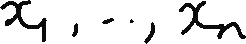 x₁, ..., xₙ